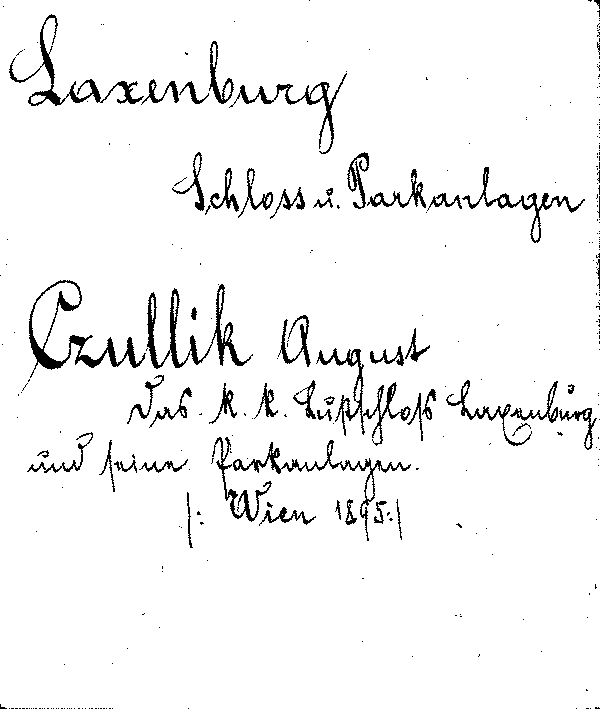 Laxenburg
Schloss u. Parkanlagen
Czullik August
Das k. k. Lustschloss Laxenburg
und seine Parkanlagen.
|: Wien 1895 :|